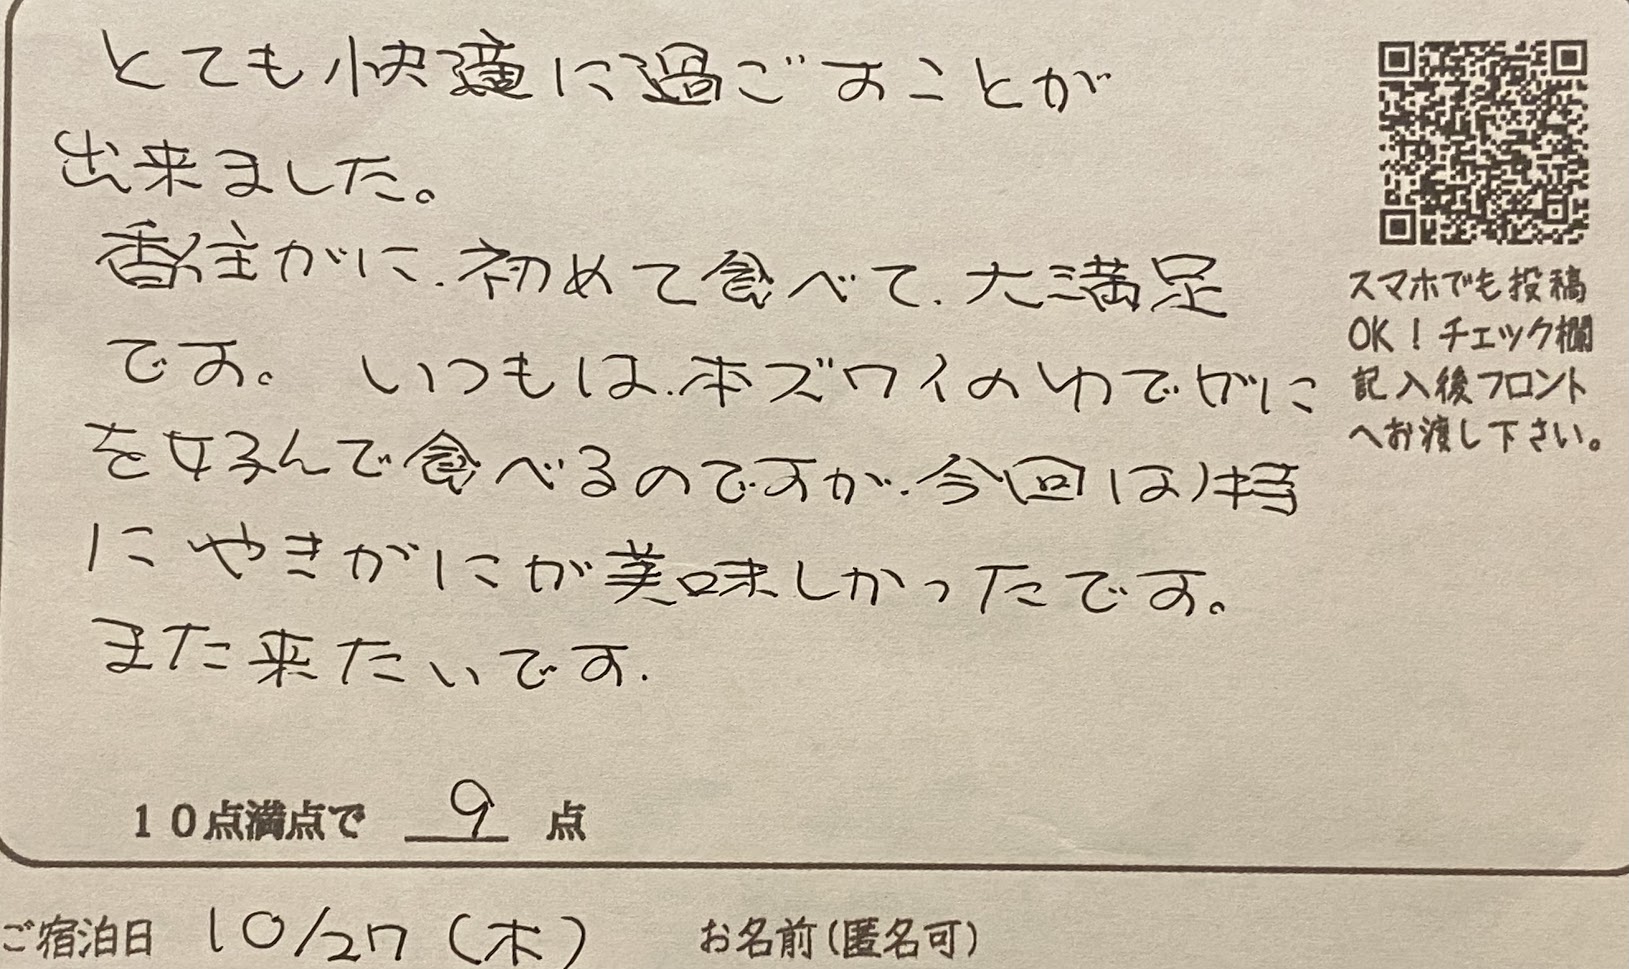 とても快適に過ごすことが
出来ました。
香住がに、初めて食べて、大満足
です。 いつもは、本ズワイのゆでがに
を好んで食べるのですが、今回は特
にやきがにが美味しかったです。
また来たいです.
スマホでも投稿
OK！チェック欄
記入後フロント
へお渡し下さい。
10点満点で 9 点
ご宿泊日 10/27 (木) お名前(匿名可)